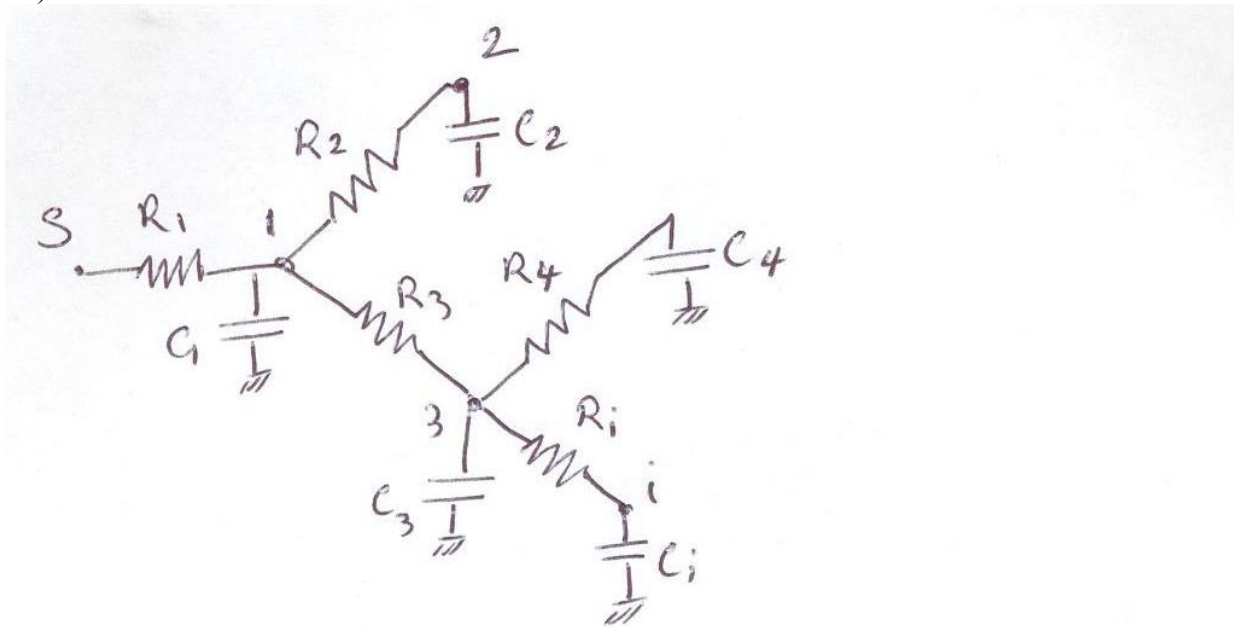 2
R2
C2
S
R1
1
C1
R3
R4
C4
3
Ri
C3
i
Ci